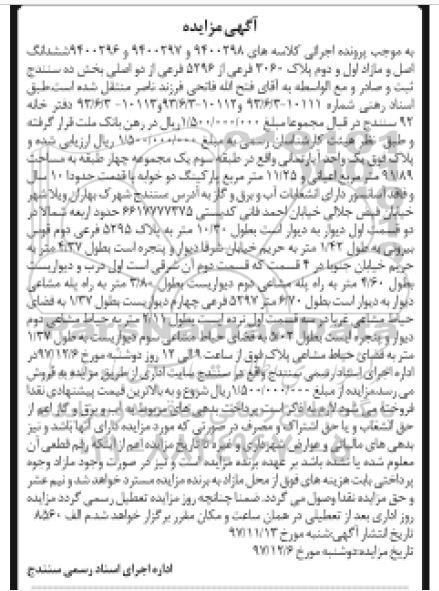 آگهی مزایده
به موجب پرونده اجرائی کلاسه های ۹۴۰۰۲۹۸ و ۹۴۰۰۲۹۷ و ۹۴۰۰۲۹۶ ششدانگ
اصل و مازاد اول و دوم پلاک ۳۰۶۰ فرعی از ۵۲۹۶ فرعی از دو اصلی بخش ده سنندج
ثبت و صادر و مع الواسطه به آقای فتح الله فاتحی فرزند ناصر منتقل شده است طبق
اسناد رهنی شماره ۱۰۱۱۱-۹۳/۶/۳ و ۱۰۱۱۲-۹۳/۶/۳ و ۱۰۱۱۳-۹۳/۶/۳ دفتر خانه
۹۲ سنندج در قبال مجموعا مبلغ ۱/۵۰۰/۰۰۰/۰۰۰ ریال در رهن بانک ملت قرار گرفته
و طبق نظر هیئت کارشناسان رسمی به مبلغ ۱/۵۰۰/۰۰۰/۰۰۰ ریال ارزیابی شده و
پلاک فوق یک واحد آپارتمانی واقع در طبقه سوم یک مجموعه چهار طبقه به مساحت
۹۱/۸۹ متر مربع اعیانی و ۱۱/۲۵ متر مربع پارکینگ دو خوابه با قدمت حدودا ۱۰ سال
و فاقد آسانسور دارای انشعابات آب و برق و گاز به آدرس سنندج شهرک بهاران ویلا شهر
خیابان فیض جلالی خیابان احمد فانی کدپستی ۶۶۱۷۷۷۷۳۷۵ حدود اربعه شمالا در
دو قسمت اول دیوار به دیوار است بطول ۱۰/۳۰ متر به پلاک ۵۲۹۵ فرعی دوم قوس
بیرونی به طول ۱/۴۲ متر به حریم خیابان شرقا دیوار و پنجره است بطول ۴/۳۷ متر به
حریم خیابان جنوبا در ۴ قسمت که قسمت دوم آن شرقی است اول درب و دیواریست
بطول ۴/۶۰ متر به راه پله مشاعی دوم دیواریست بطول ۳/۸۰ متر به راه پله مشاعی
دیوار به دیوار است بطول ۶/۷۰ متر ۵۲۹۷ فرعی چهارم دیواریست بطول ۱/۳۷ به فضای
حیاط مشاعی غربا در سه قسمت اول نرده است بطول ۲/۱۱ متر به حیاط مشاعی دوم
دیوار و پنجره است بطول ۵۰۳ به فضای حیاط مشاعی سوم دیواریست به طول ۱/۳۷
متر به فضای حیاط مشاعی پلاک فوق از ساعت ۹ الی ۱۲ روز دوشنبه مورخ ۹۷/۱۲/۶ در
اداره اجرای اسناد رسمی سنندج واقع در سنندج سایت اداری از طریق مزایده به فروش
می رسد مزایده از مبلغ ۱/۵۰۰/۰۰۰/۰۰۰ ریال شروع و به بالاترین قیمت پیشنهادی نقدا
فروخته می شود لازم به ذکر است پرداخت بدهی های مربوط به آب و برق و گاز اعم از
حق انشعاب و یا حق اشتراک و مصرف در صورتی که مورد مزایده دارای آنها باشد و نیز
بدهی های مالیاتی و عوارض شهرداری و غیره تا تاریخ مزایده اعم از اینکه رقم قطعی آن
معلوم شده یا نشده باشد بر عهده برنده مزایده است و نیز در صورت وجود مازاد وجوه
پرداختی بابت هزینه های فوق از محل مازاد به برنده مزایده مسترد خواهد شد و نیم عشر
و حق مزایده نقدا وصول می گردد. ضمنا چنانچه روز مزایده تعطیل رسمی گردد مزایده
روز اداری بعد از تعطیلی در همان ساعت و مکان مقرر برگزار خواهد شد.م الف ۸۵۶۰
تاریخ انتشار آگهی:شنبه مورخ ۹۷/۱۱/۱۳
تاریخ مزایده:دوشنبه مورخ ۹۷/۱۲/۶
اداره اجرای اسناد رسمی سنندج